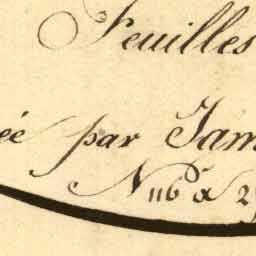 Feuilles
ée par Jam
N 116 a 2